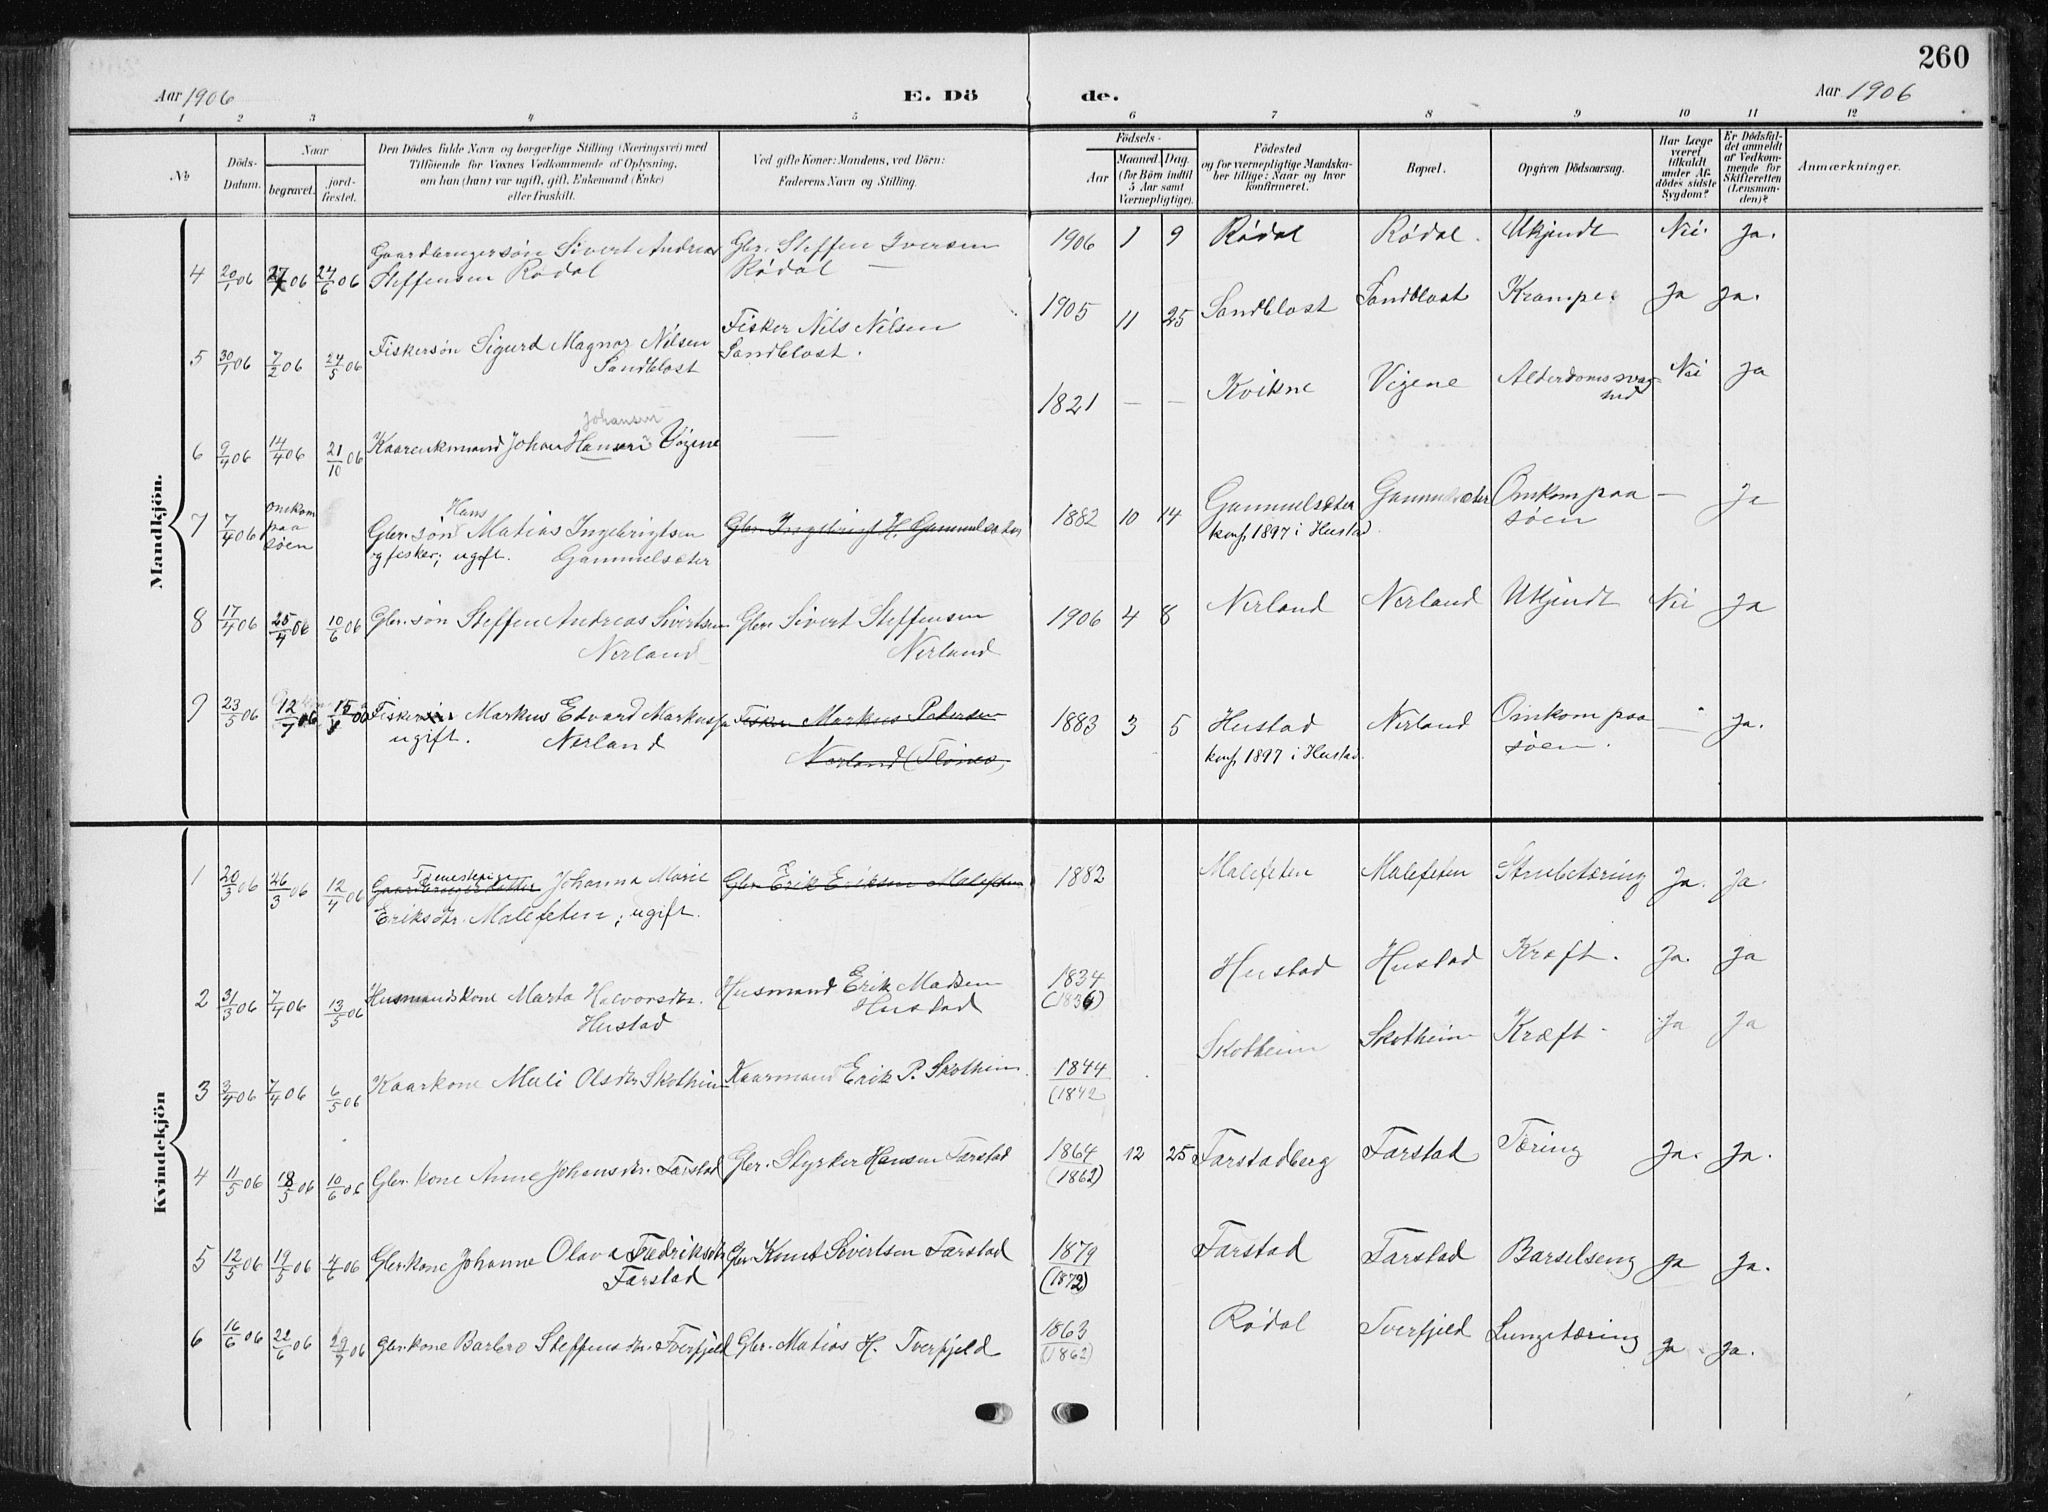 260
Aar 1906
E. Dö
de.
Aar 1906
1 2 3 4 5 6 7 8 9 10 11 12
No
Döds-
Datum.
Naar
begravet.
jord-
fæstet.
Den Dödes fulde Navn og borgerlige Stilling (Næringsvei) med
Tilföiende for Voxnes Vedkommende af Oplysning,
om han (hun) var ugift, gift, Enkemand (Enke)
eller fraskilt.
Ved gifte Koner: Mandens, ved Börn:
Faderens Navn og Stilling.
Födsels-
Aar
Maaned. Dag.
(for Börn indtil
5 Aar samt
Værnepligtige).
Födested
og for værnepligtige Mandska-
ber tillige: Naar og hvor
konfirmeret.
Bopæl.
Opgiven Dödsaarsag.
Har Læge
været
tilkaldt
under Af-
dödes sidste
Sygdom?
Er Dödsfal-
det anmeldt
af Vedkom-
mende for
Skifteretten
(Lensman-
den)?
Anmærkninger.
Mandkjön.
4 20/1 06 27/1 06 24/6 06 Gaardbrugersøn Sivert Andreas Gbr. Steffen Iversen 1906 1 9 Rødal Rødal. Ukjendt Nei. Ja.
Steffensen Rødal Rødal —
5 30/1 06 7/2 06 24/5 06 Fiskersøn Sigurd Magnor Nilsen Fisker Nils Nilsen 1905 11 25 Sandblost Sandblost Krampe. Ja Ja.
Sandblost Sandblost.
Johansen
6 9/4 06 14/4 06 21/10 06 Kaarenkmand Johan Hansen Vigene — 1821 — — Kvikne Vigene Alderdomssvag- Nei Ja
hed
7 7/4 06 Omkom paa søen Hans
Gbr. søn Matias Ingebrigtsen Gbr. Ingebrigt H. Gammelsæter 1882 10 14 Gammelsæter Gammelsæter Omkom paa — Ja
og fisker; ugift. Gammelsæter konf. 1897 i Hustad. søen
8 17/4 06 25/4 06 10/6 06 Gbr. søn Steffen Andreas Sivertsen Gbr. Sivert Steffensen 1906 4 8 Nerland Nerland Ukjendt Nei Ja
Nerland Nerland
9 23/5 06 12/7 06 15/ 06 Fisker Markus Edvard Markussen Fisker Markus Pedersen 1883 3 5 Hustad Nerland Omkom paa — Ja.
ugift. Nerland Nerland konf. 1897 i Hustad. søen.
Kvindekjön
1 20/3 06 26/3 06 12/4 06 Tjenestepige
Gaardbrugerdatter Johanna Marie Gbr. Erik Eriksen Malefeten 1882 Malefeten Malefeten Strubetæring Ja. Ja.
Eriksdtr. Malefeten; ugift.
2 31/3 06 7/4 06 13/5 06 Husmandskone Marta Halvorsdtr. Husmand Erik Madsen 1834 Hustad Hustad Kræft. Ja. Ja
Hustad Hustad (1836)
3 3/4 06 7/4 06 6/5 06 Kaarkone Meli Olsdtr Skotheim Kaarmand Erik P. Skotheim. 1844 Skotheim Skotheim Kræft. Ja Ja
(1842
4 11/5 06 18/5 06 10/6 06 Gbr. kone Anne Johansdtr. Farstad Gbr. Styrker Hansen Farstad 1864 12 25 Farstadberg Farstad Tæring Ja. Ja.
(1862)
5 12/5 06 19/5 06 4/6 06 Gbr. kone Johanna Olava Fredriksdtr Gbr. Knut Sivertsen Farstad 1879 Farstad Farstad Barselseng Ja Ja.
Farstad (1872)
6 16/6 06 22/6 06 29/7 06 Gbr. kone Barbro Steffensdtr. Tverfjeld Gbr. Matias H. Tverfjeld 1863 Rødal Tverfjeld Lungetæring Ja. Ja.
(1862)